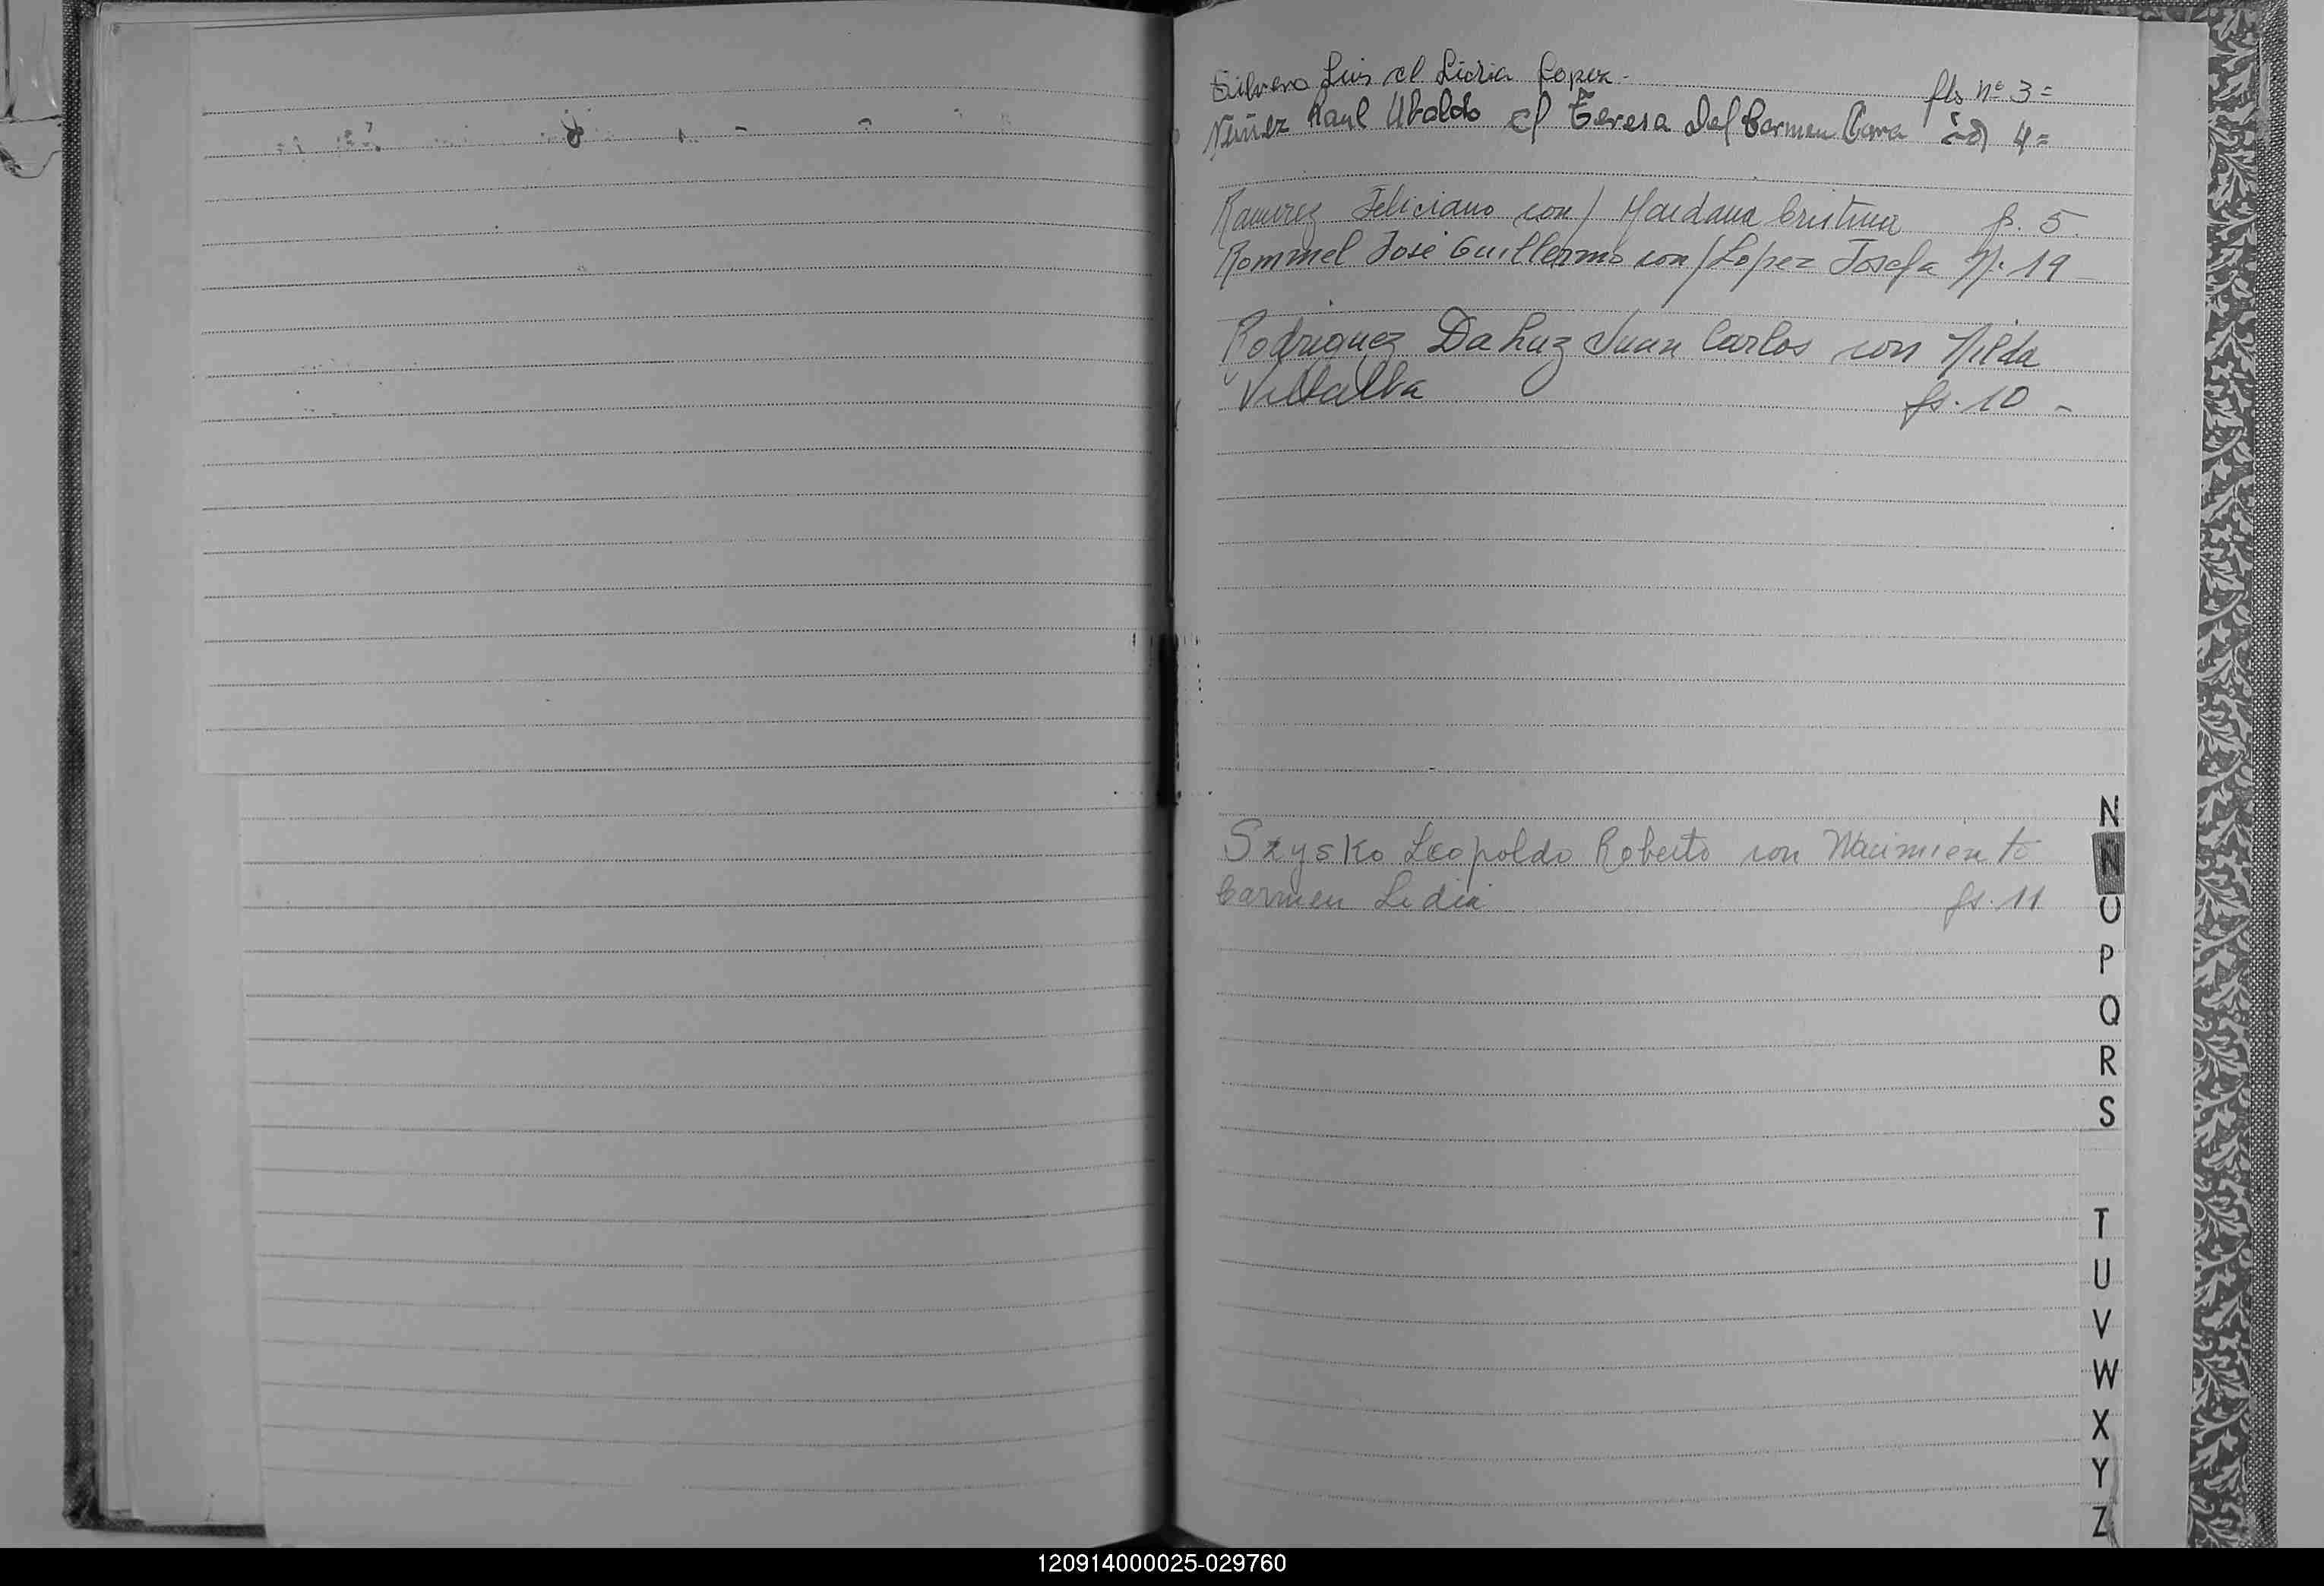 Silvero Luis c/ Lidia Lopez - fls nº 3=
Nuñez Raul Ubaldo c/ Teresa Del Carmen id 4=
Ramirez Feliciano con/ Maidana Cristina fs. 5.
Rommel José Guillermo con/ Lopez Josefa 19
Rodriguez Da Luz Juan Carlos con Nilda
Villalba fs. 10 -
Szysko Leopoldo Roberto con Nacimiento
Carmen Lidia fs. 11
N
N
O
P
Q
R
S
T
U
V
W
X
Y
Z
120914000025-029760